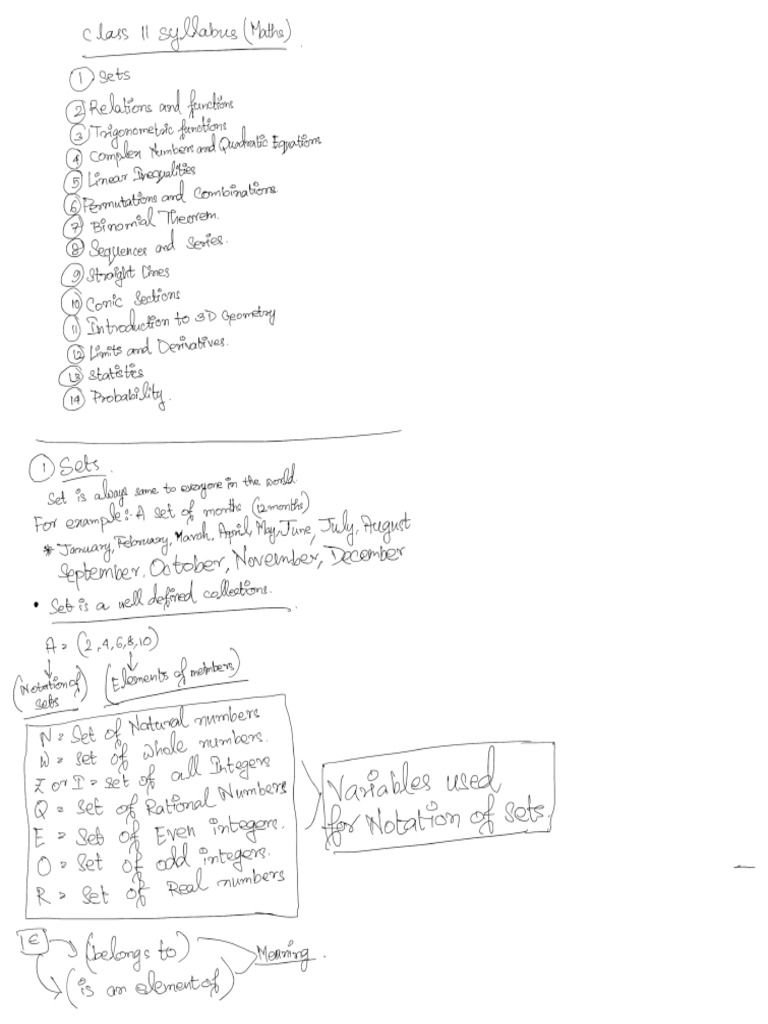 Class 11 syllabus (Maths)
① Sets
② Relations and functions
③ Trigonometric functions
④ Complex Numbers and Quadratic Equations
⑤ Linear Inequalities
⑥ Permutations and Combinations
⑦ Binomial Theorem.
⑧ Sequences and Series.
⑨ Straight Lines
⑩ Conic Sections
⑪ Introduction to 3D Geometry
⑫ Limits and Derivatives.
⑬ Statistics
⑭ Probability.
① Sets.
Set is always same to everyone in the world
For example:- A set of months (12 months)
* January, February, March, April, May, June, July, August
September, October, November, December
• Set is a well defined collections.
A = (2,4,6,8,10)
(Notation of sets) (Elements of members)
N = Set of Natural numbers
W = Set of whole numbers.
Z or I = set of all Integers
Q = Set of Rational Numbers
E = Set of Even integers.
O = Set of odd integers.
R = Set of Real numbers
Variables used
for Notation of sets.
∈ (belongs to) Meaning.
(is an element of)